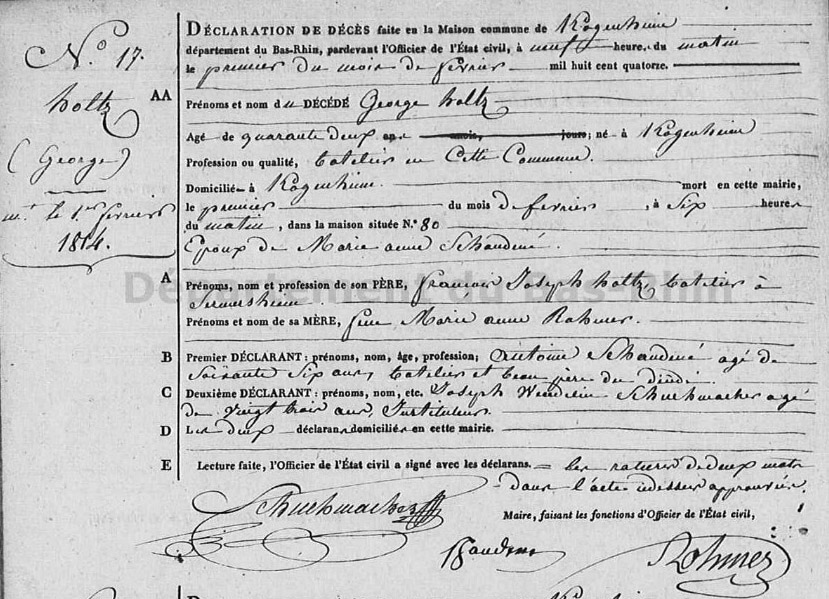 N.º 17.
holtz
(George)
m.t le 1.er fevrier
1814.
DÉCLARATION DE DÉCÈS faite en la Maison commune de Kogenheim
département du Bas-Rhin, pardevant l'Officier de l'État civil, à neuf heure, du matin
le premier du mois de fevrier mil huit cent quatorze.
AA Prénoms et nom du DÉCÉDÉ George holtz
Agé de quarante deux ans mois, jours; né à Kogenheim
Profession ou qualité, batelier en Cette Commune.
Domicilié à Kogenheim. mort en cette mairie,
le premier du mois de fevrier, à Six heures
du matin, dans la maison située N.º 80
Epoux de Marie anne Schaudené.
Département du Bas-Rhin
A Prénoms, nom et profession de son PÈRE, francois Joseph holtz, batelier à
Sermersheim
Prénoms et nom de sa MÈRE, feue Marie anne Rohmer.
B Premier DÉCLARANT: prénoms, nom, âge, profession; Antoine Schaudené agé de
Soixante Six ans, batelier et beau père du décédé.
C Deuxième DÉCLARANT: prénoms, nom, etc. Joseph Wendelin Schuhmacher agé
de vingt trois ans, Instituteur.
D Les deux déclarans domiciliés en cette mairie.
E Lecture faite, l'Officier de l'État civil a signé avec les déclarans. = les ratures de deux mots
dans l'acte cidessus approuvées.
Schuhmacher
Maire, faisant les fonctions d'Officier de l'État civil,
Rohmer